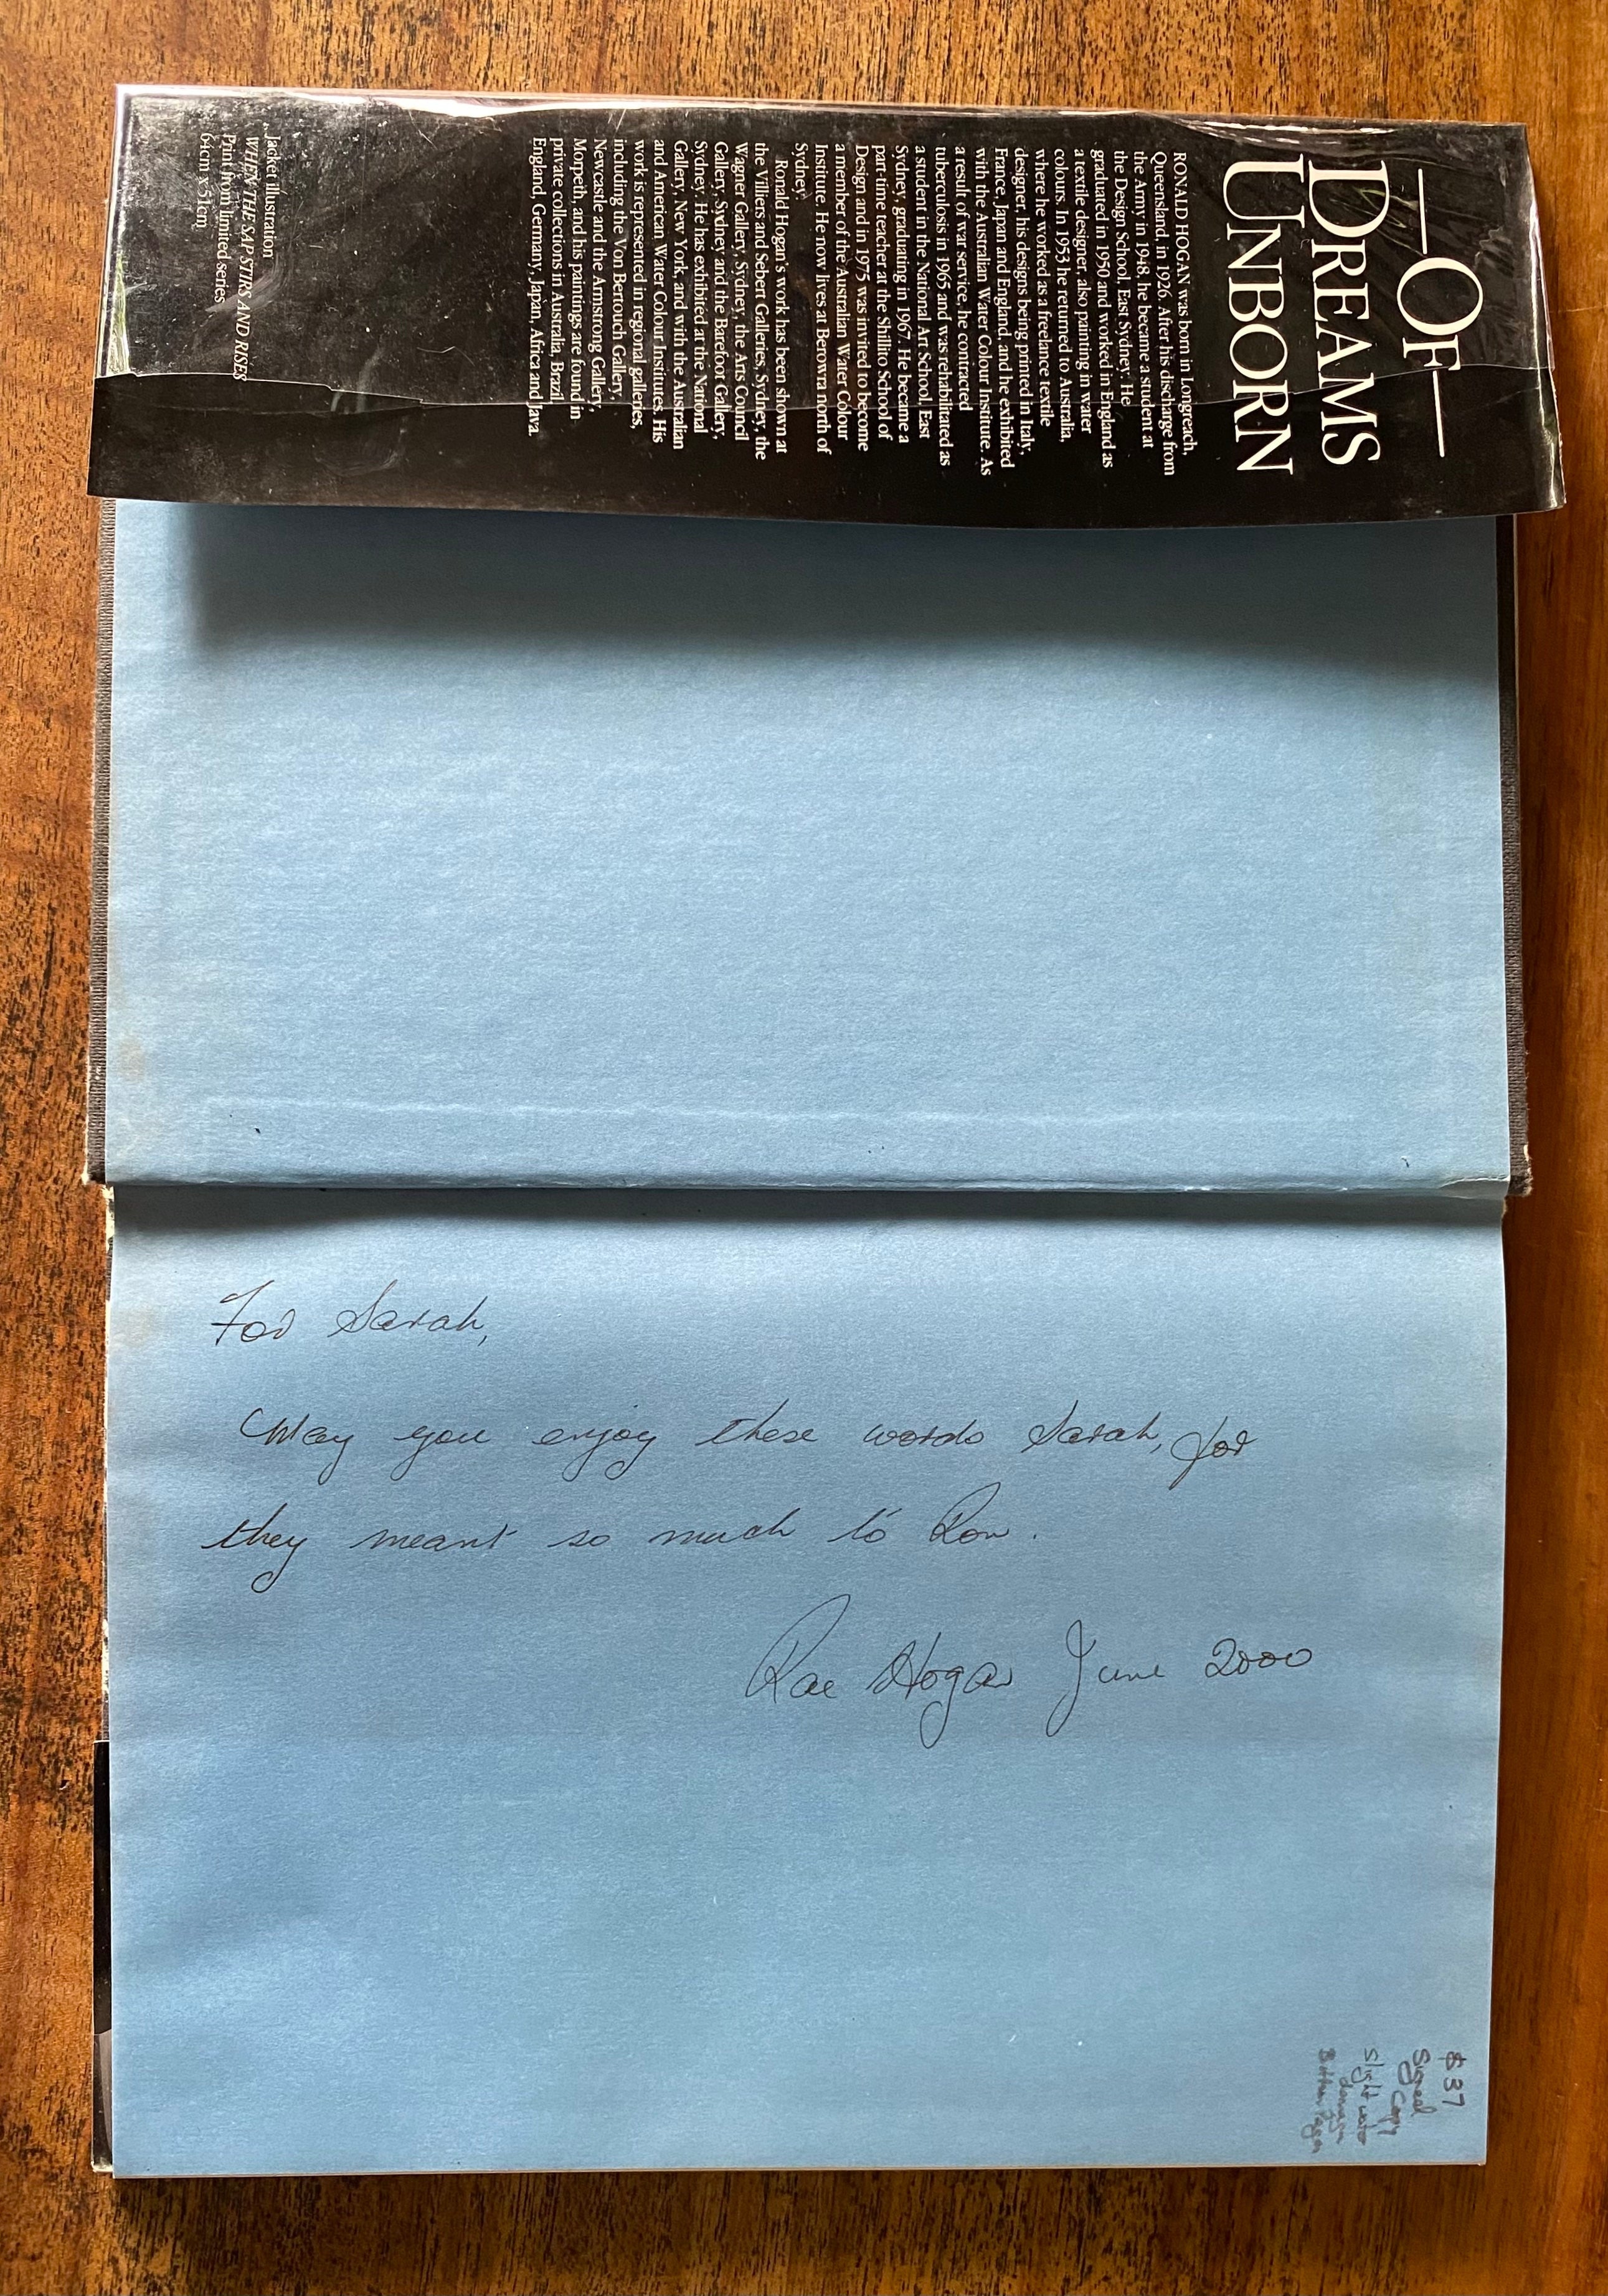 OF
DREAMS
UNBORN
RONALD HOGAN was born in Longreach,
Queensland, in 1926. After his discharge from
the Army in 1948, he became a student at
the Design School, East Sydney. He
graduated in 1950 and worked in England as
a textile designer, also painting in water
colours. In 1953 he returned to Australia,
where he worked as a freelance textile
designer, his designs being printed in Italy,
France, Japan and England, and he exhibited
with the Australian Water Colour Institute. As
a result of war service, he contracted
tuberculosis in 1965 and was rehabilitated as
a student in the National Art School, East
Sydney, graduating in 1967. He became a
part-time teacher at the Shillito School of
Design and in 1975 was invited to become
a member of the Australian Water Colour
Institute. He now lives at Berowra north of
Sydney.
Ronald Hogan's work has been shown at
the Villiers and Sebert Galleries, Sydney, the
Wagner Gallery, Sydney, the Arts Council
Gallery, Sydney and the Barefoot Gallery,
Sydney. He has exhibited at the National
Gallery, New York, and with the Australian
and American Water Colour Institutes. His
work is represented in regional galleries,
including the Von Bertouch Gallery,
Newcastle and the Armstrong Gallery,
Morpeth, and his paintings are found in
private collections in Australia, Brazil,
England, Germany, Japan, Africa and Java.
Jacket illustration
WHEN THE SAP STIRS AND RISES
Print from limited series
64cm x 51cm
For Sarah,
May you enjoy these words Sarah, for
they meant so much to Ron.
Rae Hogan June 2000
$37
Signed
Copy
slight water
damage
Bottom Pages